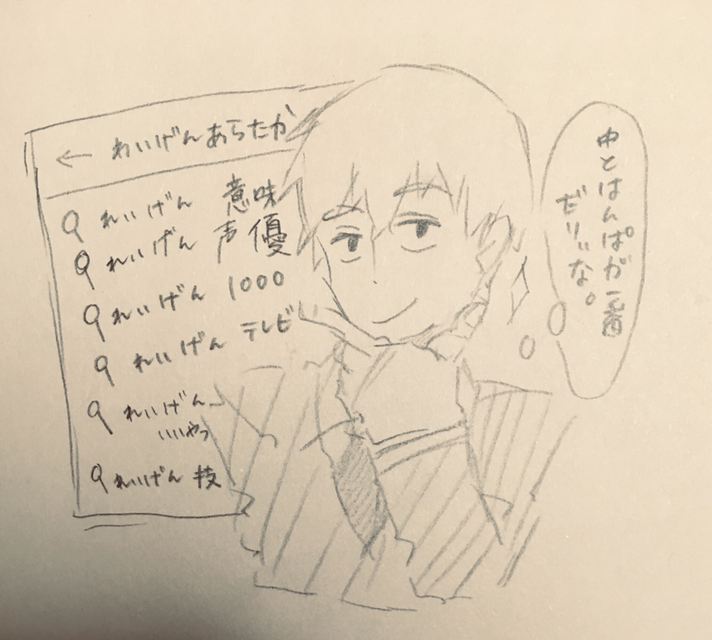 ← れいげんあらたか
れいげん 意味
れいげん 声優
れいげん 1000
れいげん テレビ
れいげん
いいやつ
れいげん 技
中とはんぱが一番
だりぃな。